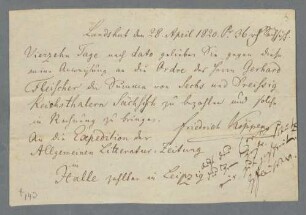 Landshut den 28 April 1820. Pr 36 rf Sächsisch
Vierzehn Tage nach dato gelieben Sie gegen diese
meine Anweisung an die Ordre des Herrn Gerhard
Fleischer die Summe von Sechs und Dreißig
Reichsthalern Sächsisch zu bezahlen und solche
in Rechnung zu bringen.
Friedrich Köppen
An die Expedition der
Allgemeinen Litteratur-Zeitung
in
Halle zahlbar in Leipzig